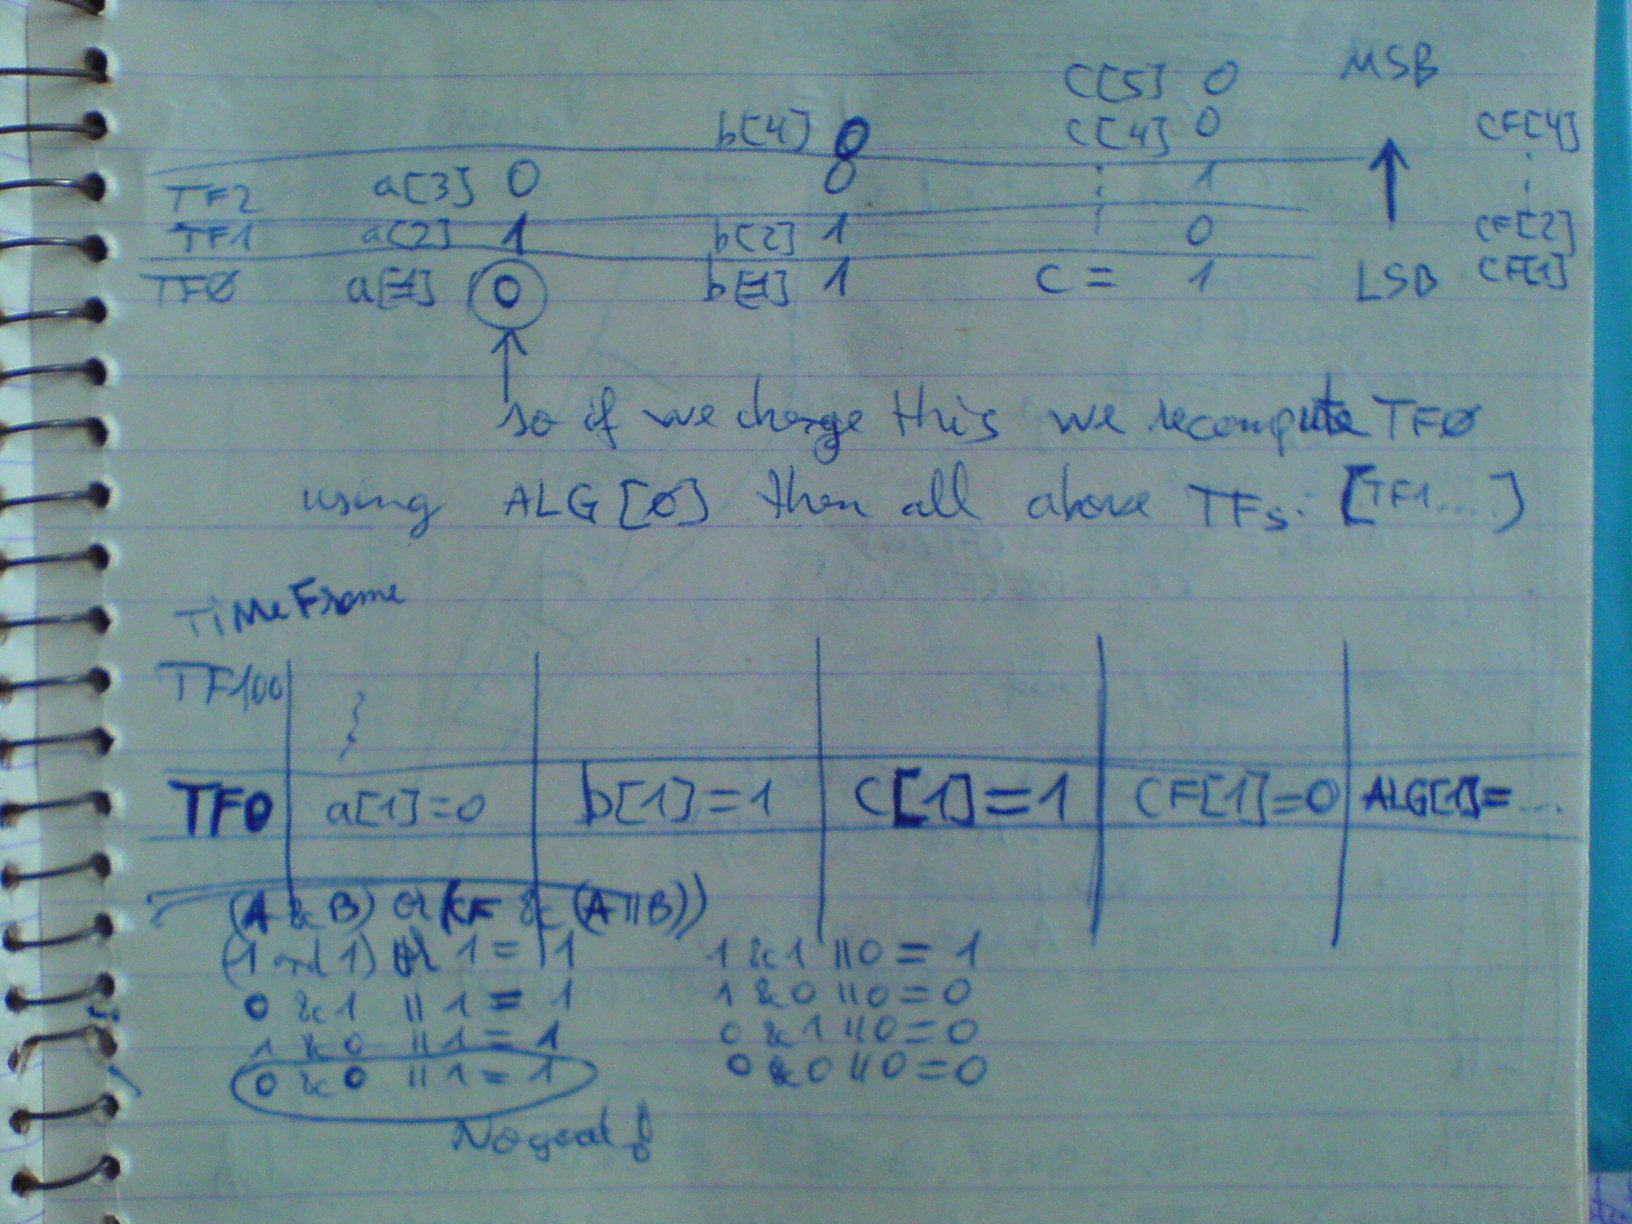 C[5] 0 MSB
b[4] 0 C[4] 0 CF[4]
TF2 a[3] 0 0 ⋮ 1 ⋮
TF1 a[2] 1 b[2] 1 ⋮ 0 CF[2]
TFØ a[1] 0 b[1] 1 C = 1 LSB CF[1]
so if we change this we recompute TFØ
using ALG[Ø] then all above TFs: [TF1....]
TimeFrame
TF100
TF0 a[1]=0 b[1]=1 C[1]=1 CF[1]=0 ALG[1]=...
(A & B) or (CF & (A || B))
(1 and 1) OR 1 = 1 1 & 1 || 0 = 1
0 & 1 || 1 = 1 1 & 0 || 0 = 0
1 & 0 || 1 = 1 0 & 1 || 0 = 0
0 & 0 || 1 = 1 0 & 0 || 0 = 0
No good